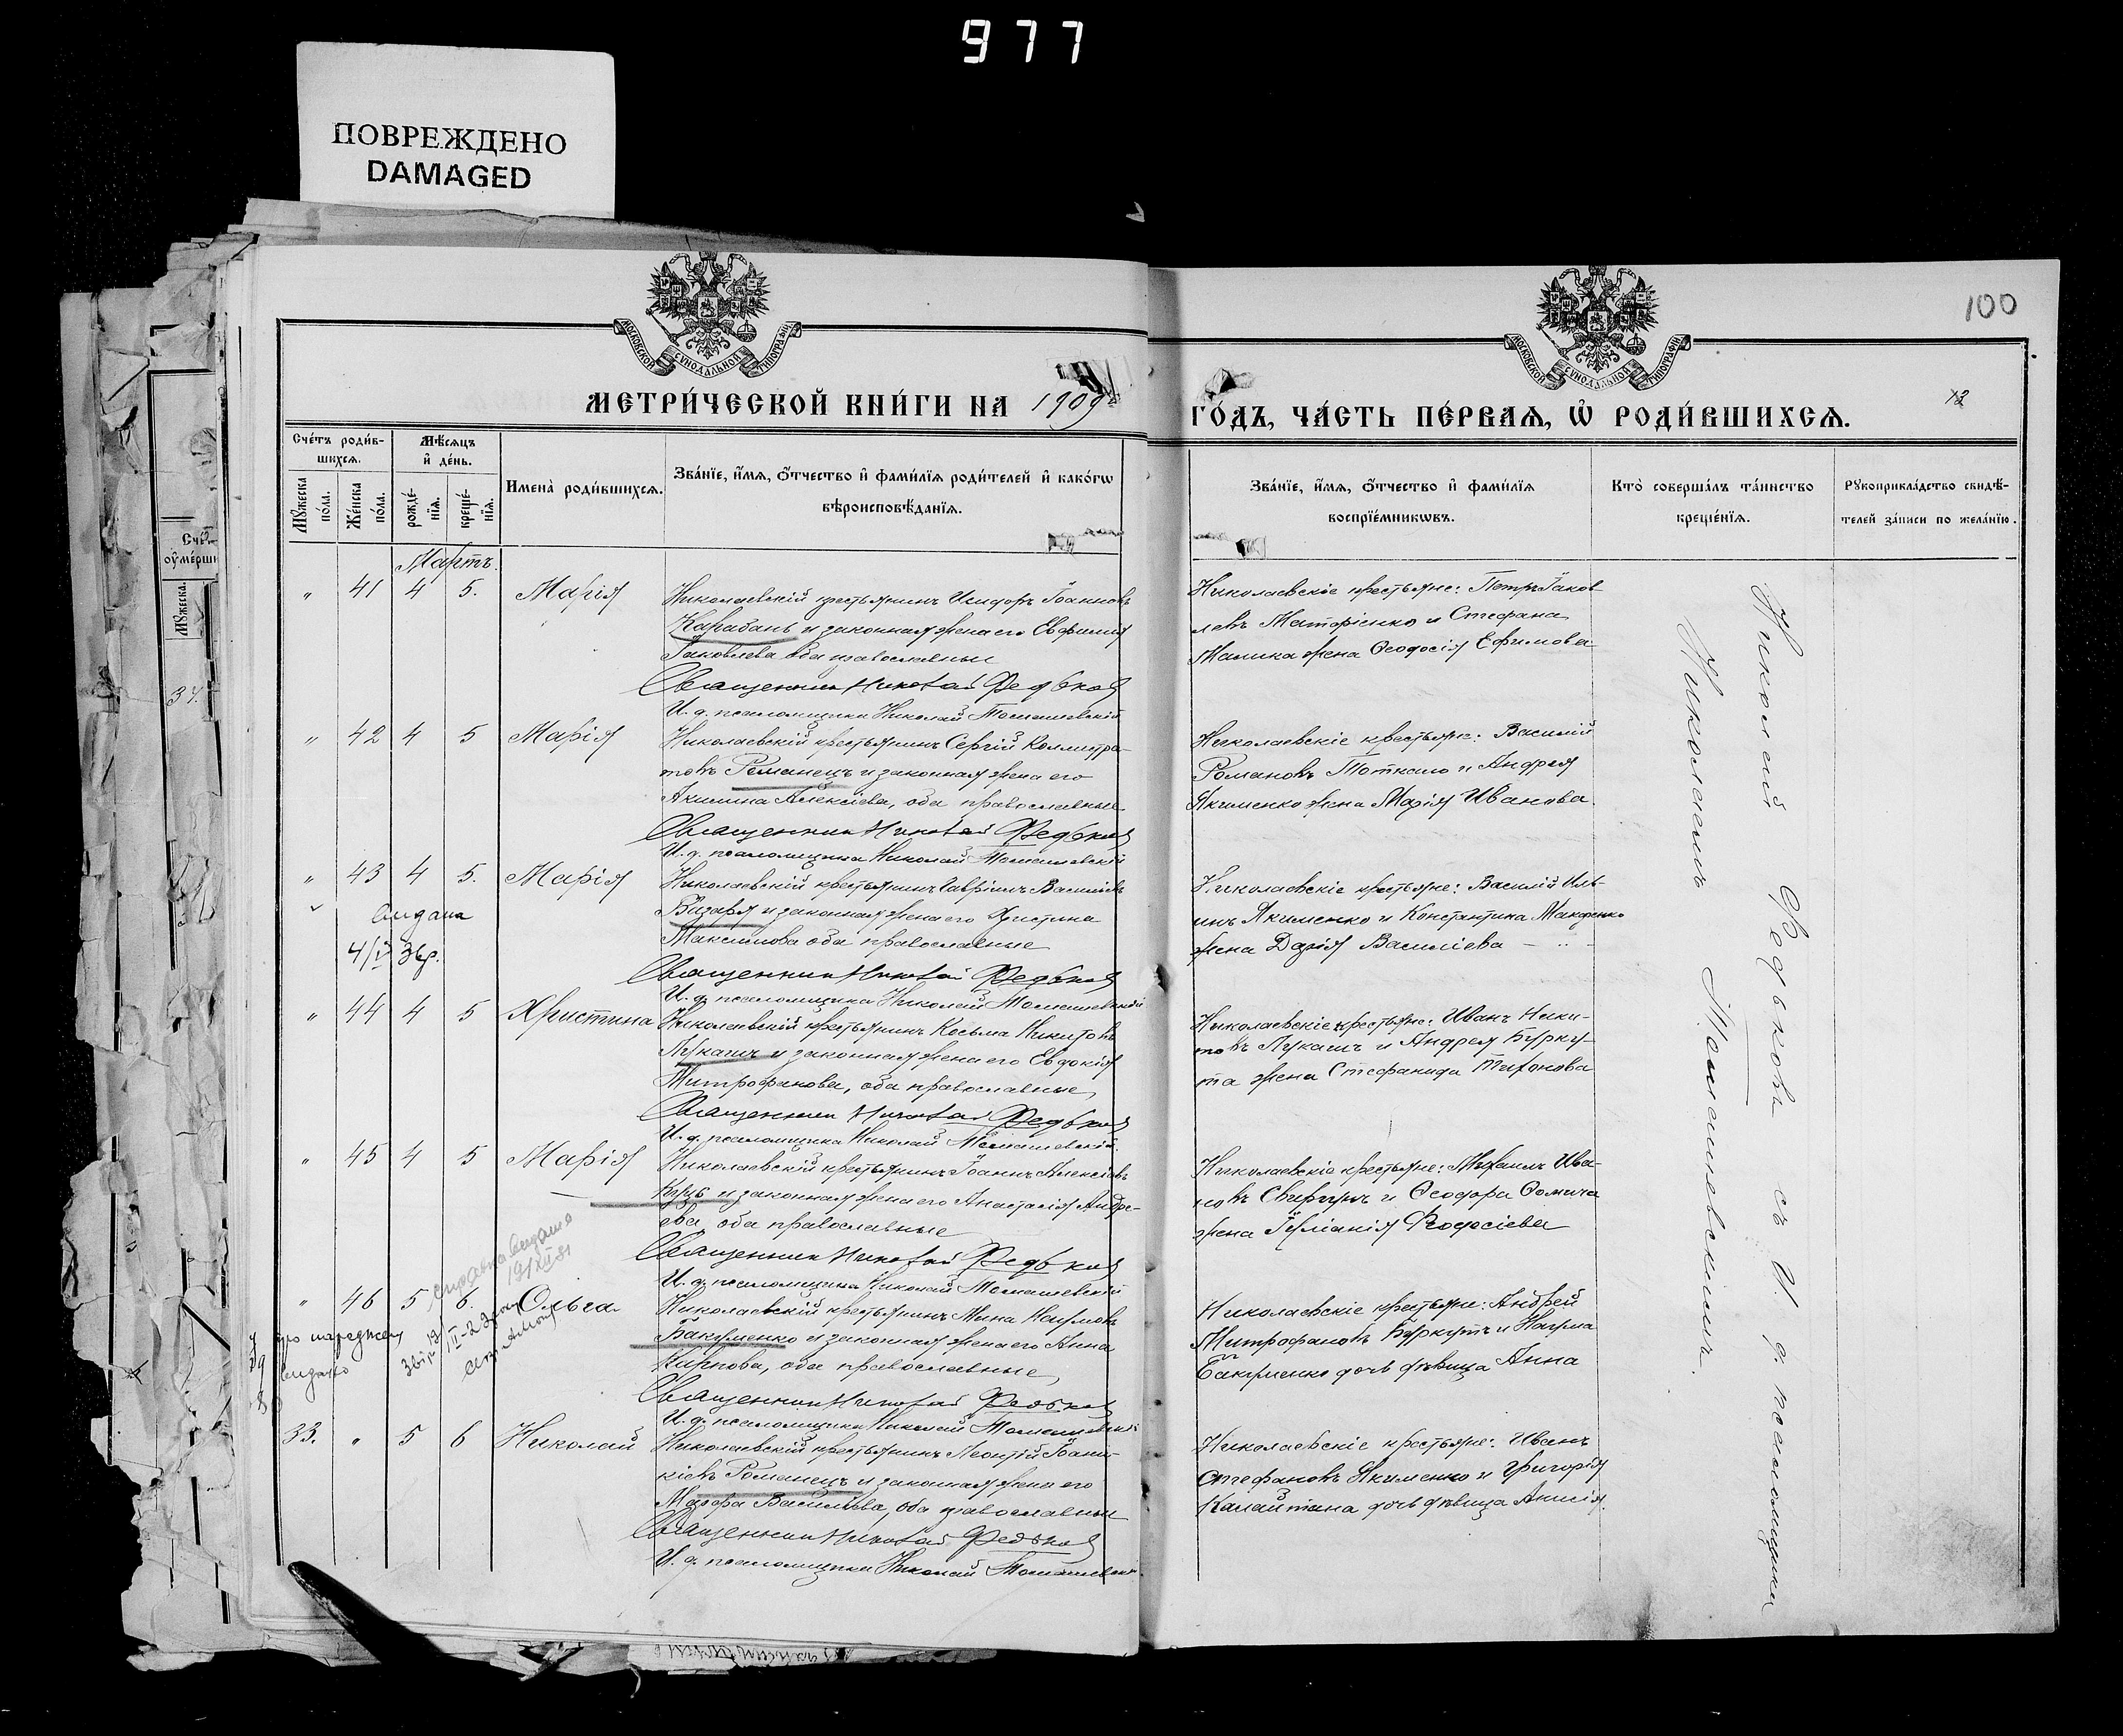 977
ПОВРЕЖДЕНО
DAMAGED
100
МОСКОВСКОЙ СѴНОДАЛЬНОЙ ТИПОГРАФІИ
МОСКОВСКОЙ СѴНОДАЛЬНОЙ ТИПОГРАФІИ
МЕТРИ́ЧЕСКОЙ КНИ́ГИ НА 1909
ГО́ДЪ, ЧА́СТЬ ПЕ́РВАЯ, Ѡ҆ РОДИ́ВШИХСЯ.
Сче́тъ роди́в-
шихся.
Мѣ́сяцъ
и҆ де́нь.
Мꙋ́жеска
по́ла.
Же́нска
по́ла.
рожде́-
нїя.
креще́-
нїя.
Имена̀ роди́вшихся.
Зва́нїе, и҆́мя, ѻ҆́тчество и҆ фами́лїя роди́телей и҆ како́гѡ
вѣроисповѣ́данїя.
Зва́нїе, и҆́мя, ѻ҆́тчество и҆ фами́лїя
воспрїе́мникѡвъ.
Кто̀ соверша́лъ та́инство
креще́нїя.
Рꙋкоприкла́дство свидѣ́-
телей за́писи по жела́нїю.
Мартъ.
" 41 4 5. Марія
Николаевскій крестьянинъ Исидоръ Іоанновъ
Карабань и законная жена его Евфимія
Іаковлева оба православные
Священникъ Николай Федьковъ
И. д. псаломщика Николай Томашевскій
Николаевскіе крестьяне: Петръ Іаков
левъ Матвіенко и Стефана
жена Ѳеодосія Ефимова
" 42 4 5 Марія
Николаевскій крестьянинъ Сергій Каллистра-
товъ Романецъ и законная жена его
Акилина Алексіева, оба православные
Священникъ Николай Федьковъ
И. д. псаломщика Николай Томашевскій
Николаевскіе крестьяне: Василій
Романовъ и Андрея
Якименко жена Марія Иванова
" 43 4 5. Марія
видана
4/V Звр.
Николаевскій крестьянинъ Гавріилъ Василіевъ
Визаря и законная жена его Христина
Максимова оба православные
Священникъ Николай Федьковъ
И. д. псаломщика Николай Томашевскій
Николаевскіе крестьяне: Василій Иль-
инъ Якименко и Константина Макаренко
жена Дарія Василіева
" 44 4 5 Христина
Николаевскій крестьянинъ Косьма Никитовъ
Лукашъ и законная жена его Евдокія
Митрофанова, оба православные
Священникъ Николай Федьковъ
И. д. псаломщика Николай Томашевскій
Николаевскіе крестьяне: Иванъ Ники-
товъ Лукашъ и Андрея Бурку-
та жена Стефанида Тихонова
" 45 4 5 Марія
Николаевскій крестьянинъ Іоаннъ Алексіевъ
Куць и законная жена его Анастасія Андре-
ева, оба православные
Священникъ Николай Федьковъ
И. д. псаломщика Николай Томашевскій
Николаевскіе крестьяне: Михаилъ Ива-
новъ Свиргунъ и Ѳеодора Ѳомича
жена Іуліанія Ѳеодосіева
видана
" 46 5 6. Ольга
про народжен
видано
Николаевскій крестьянинъ Мина Наумовъ
Бакуменко и законная жена его Анна
Карпова, оба православные
Священникъ Николай Федьковъ
И. д. псаломщика Николай Томашевскій
Николаевскіе крестьяне: Андрей
Митрофановъ Буркутъ и Наума
Бакуменко дочь дѣвица Анна
33. " 5 6 Николай
Николаевскій крестьянинъ Леонтій Іоанни-
кіевъ Романецъ и законная жена его
Марфа Васильева, оба православные
Священникъ Николай Федьковъ
И. д. псаломщика Николай Томашевскій
Николаевскіе крестьяне: Иванъ
Стефановъ Якименко и Григорія
Калайтана дочь дѣвица Анисія.
Николай Федьковъ съ И. д. псаломщика
Николаемъ Томашевскимъ.